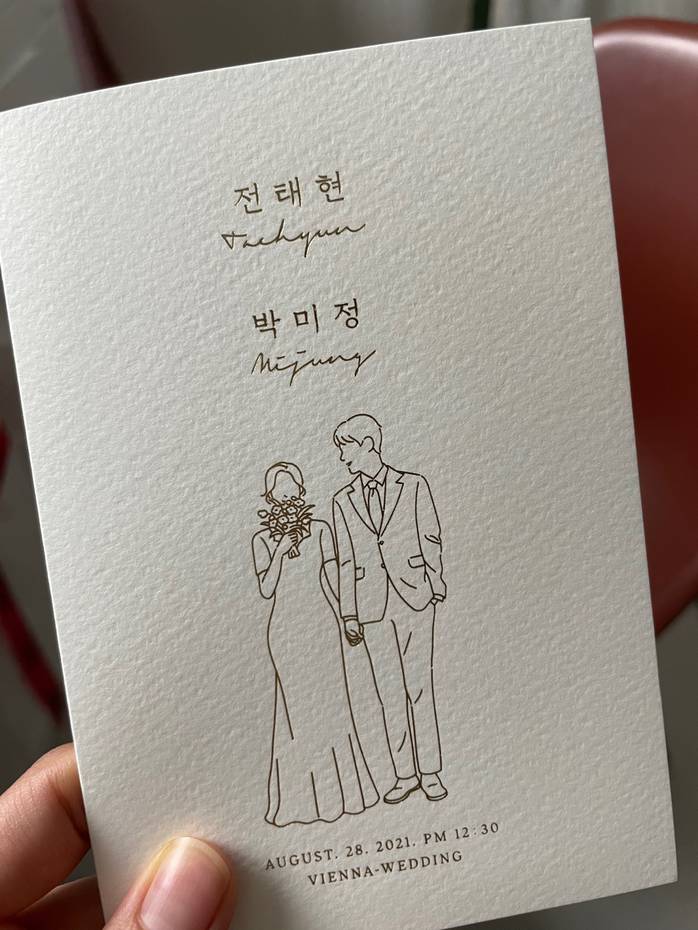 전태현
Taehyun
박미정
Mijung
AUGUST. 28. 2021. PM 12:30
VIENNA-WEDDING